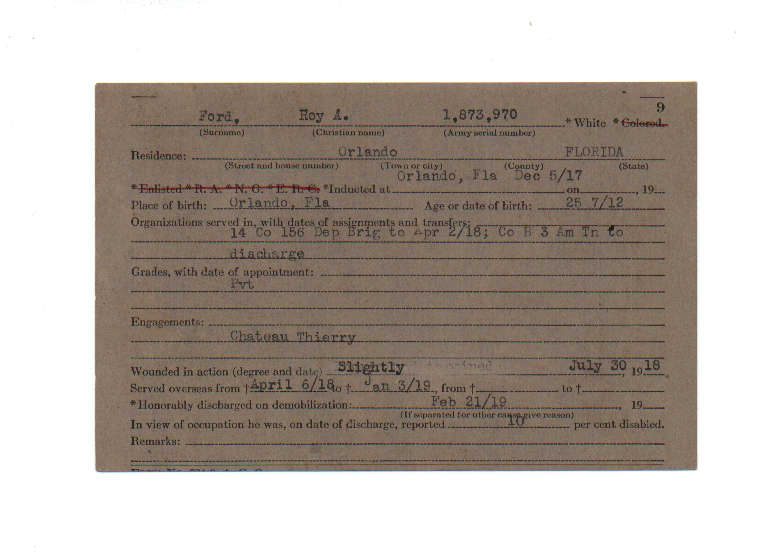 9
Ford, Roy A. 1,873,970 * White * Colored.
(Surname) (Christian name) (Army serial number)
Residence: Orlando FLORIDA
(Street and house number) (Town or city) (County) (State)
Orlando, Fla Dec 5/17
* Enlisted * R. A. * N. G. * E. R. C. *Inducted at on , 19
Place of birth: Orlando, Fla Age or date of birth: 25 7/12
Organizations served in, with dates of assignments and transfers:
14 Co 156 Dep Brig to Apr 2/18; Co B 3 Am Tn to
discharge
Grades, with date of appointment:
Pvt
Engagements:
Chateau Thierry
Wounded in action (degree and date) Slightly July 30 , 19 18
Served overseas from † April 6/18 to † Jan 3/19 , from † to †
* Honorably discharged on demobilization: Feb 21/19 , 19
(If separated for other cause give reason)
In view of occupation he was, on date of discharge, reported 10 per cent disabled.
Remarks: